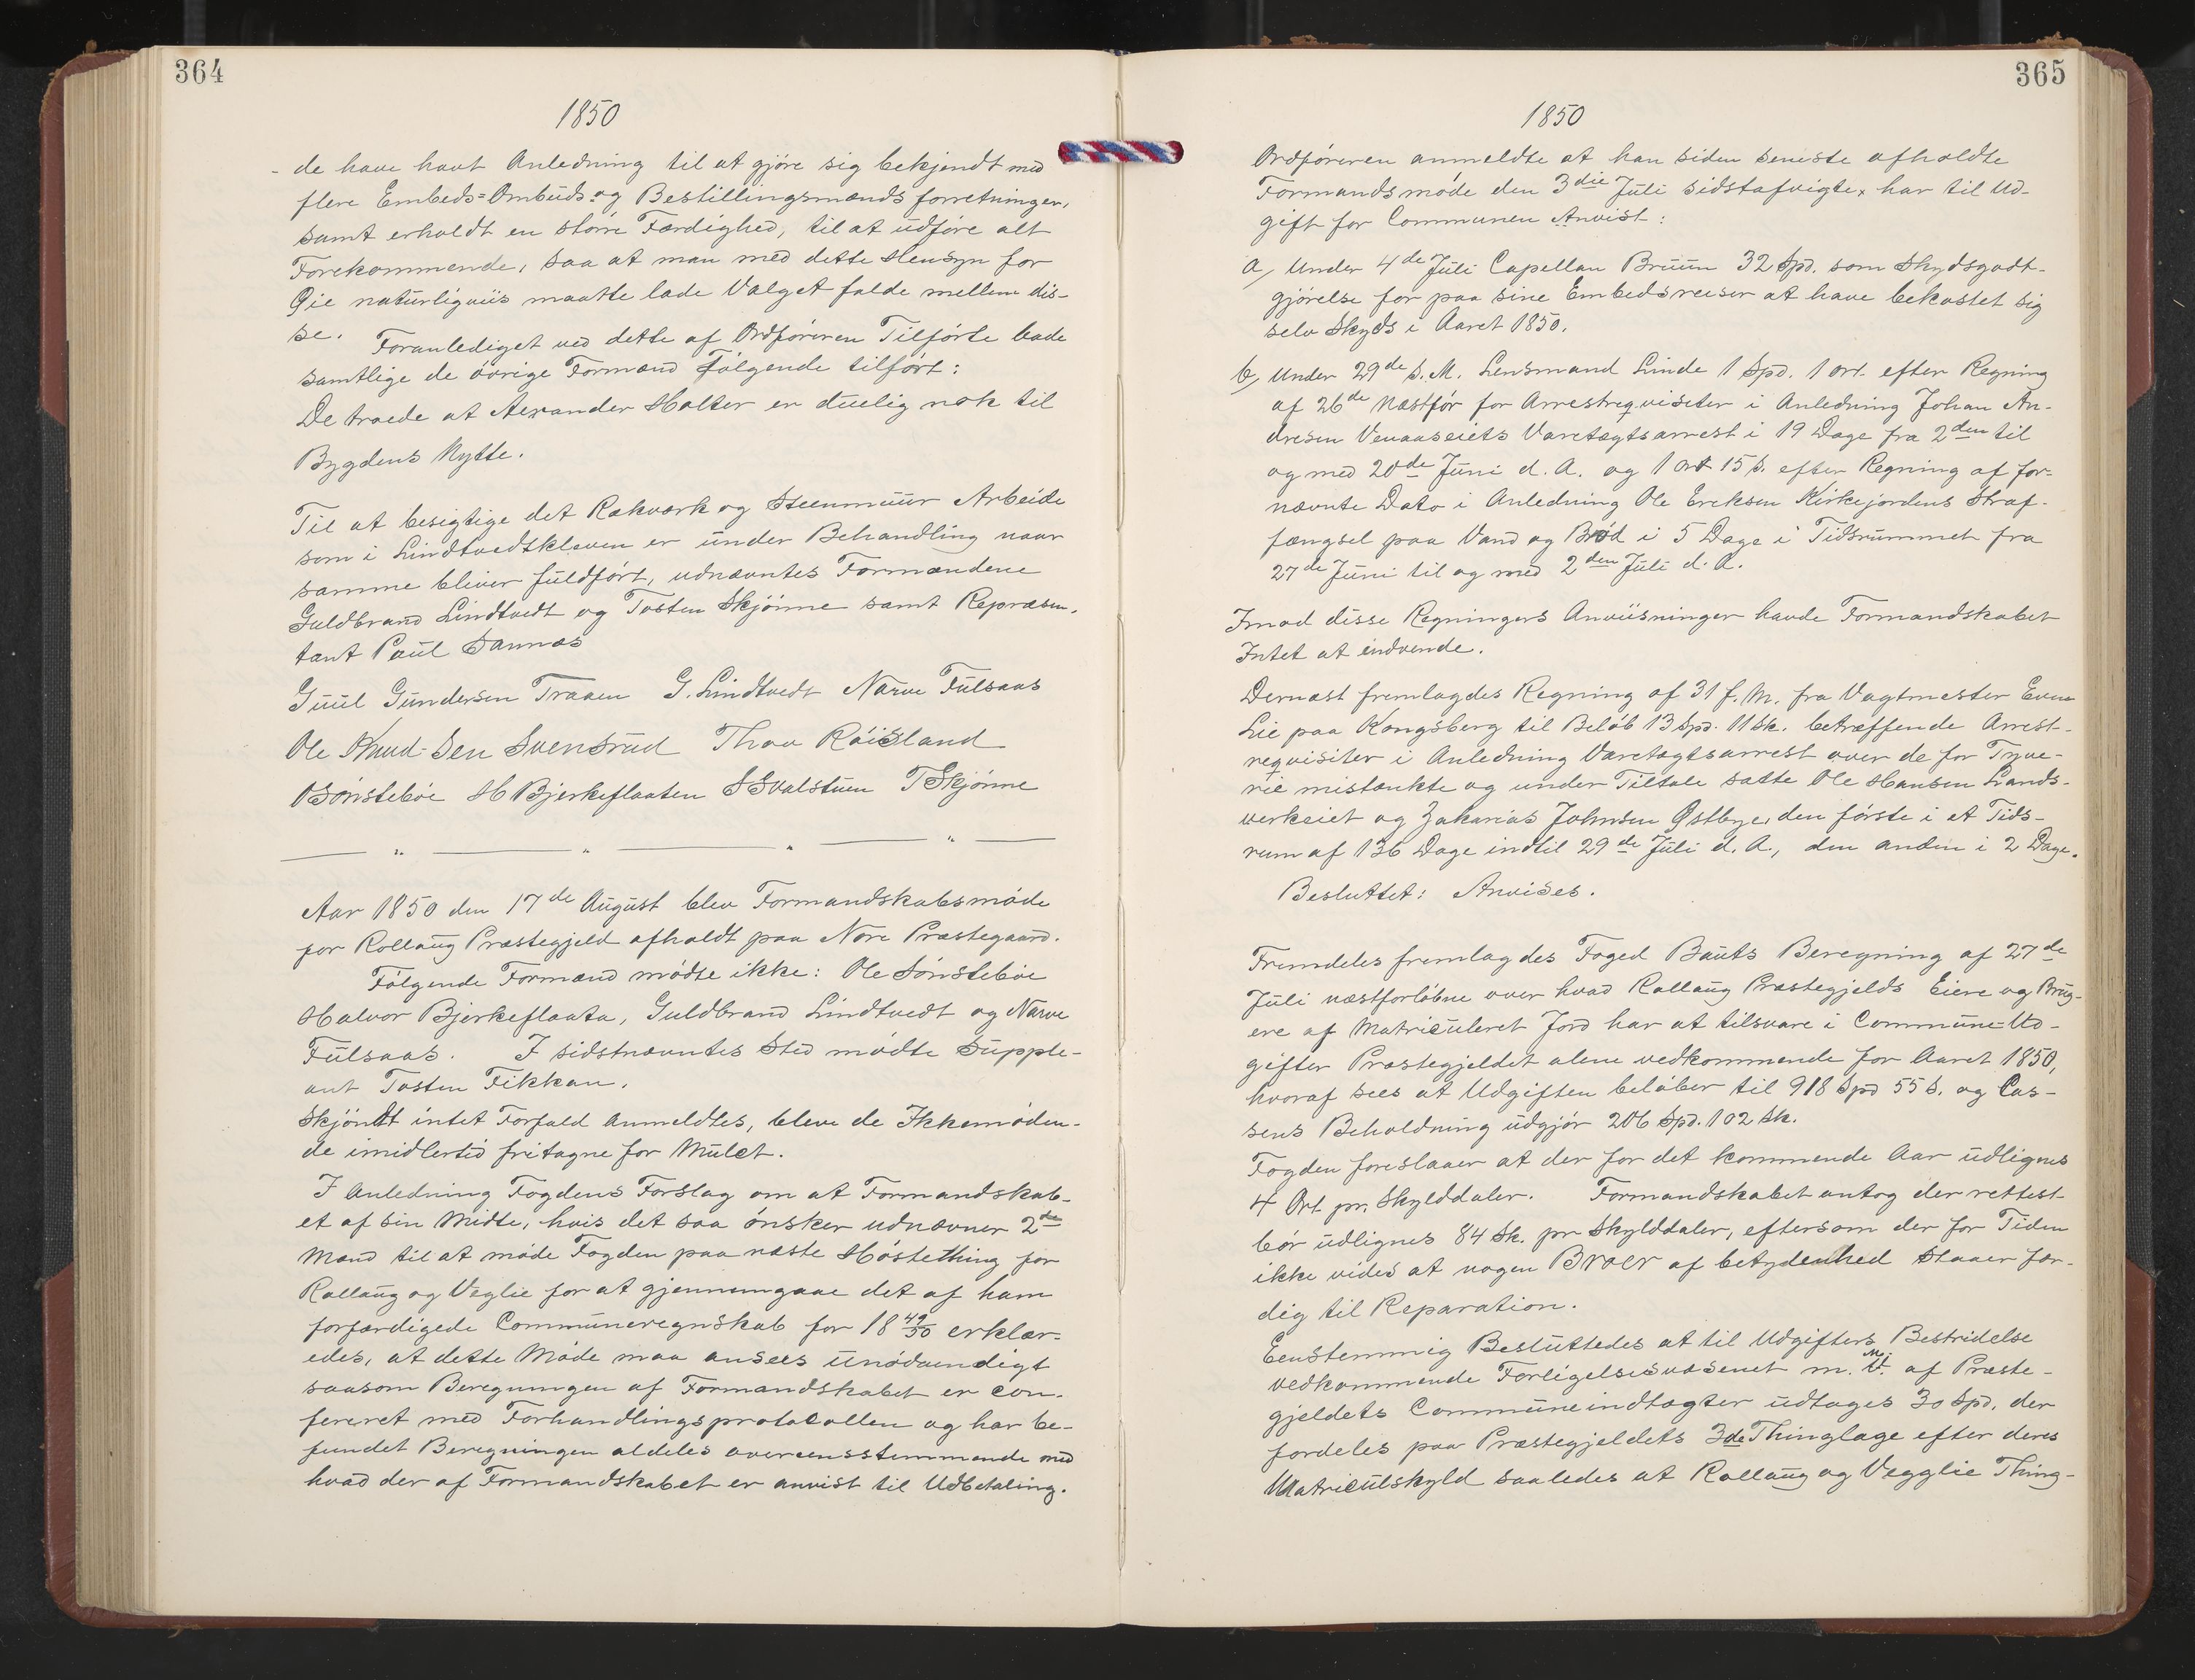 364
1850
- de have havt Anledning til at gjöre sig bekjendt med
flere Embeds= Ombuds= og Bestillingsmænds forretninger,
samt erholdt en större Færdighed, til at udföre alt
Forekommende, saa at man med dette Hensyn for
Øie naturligviis maatte lade Valget falde mellem dis-
se.
Foranlediget ved dette af Ordföreren Tilförte bade
samtlige de övrige Formænd Fölgende tilfört:
De troede at Alexander Halter er duelig nok til
Bygdens Nytte.
Til at besigtige det Rækværk og Steenmuur Arbeide
som i Lindtvedtkleven er under Behandling naar
samme bliver fuldfört, udnævntes Formændene
Guldbrand Lindtvedt og Tosten Skjönne samt Repræsen-
tant Paul Sannæs
Guul Gundersen Traaen G. Lindtvedt Narve Fulsaas
Ole Knud-Sen Svensrud Thov Röisland
OSönsteböe H Bjerkeflaaten S Svalstuen T Skjönne
Aar 1850 den 17de August blev Formandskabsmöde
for Rollaug Præstegjeld afholdt paa Nore Præstegaard.
Fölgende Formænd mödte ikke: Ole Sönsteböe
Halvor Bjerkeflaata, Guldbrand Lindtvedt og Narve
Fulsaas. I sidstnævntes Sted mödte Supple-
ant Tosten Fikkan.
Skjöndt intet Forfald Anmeldtes, bleve de Ikkemöden-
de imidlertid fritagne for Mulct.
I Anledning Fogdens Forslag om at Formandskab-
et af sin Midte, hvis det saa önsker udnævner 2de
Mænd til at möde Fogden paa næste Hösteting for
Rollaug og Veglie for at gjennemgaae det af ham
forfærdigede Communeregnskab for 18 49/50 erklær-
edes, at dette Möde maa ansees unödvendigt
saasom Beregningen af Formandskabet er con-
fereret med Forhandlingsprotocollen og har be-
fundet Beregningen aldeles overeensstemmende med
hvad der af Formandskabet er anvist til Udbetaling.
365
1850
Ordföreren anmeldte at han siden seneste afholdte
Formandsmöde den 3die Juli sidstafvigte, har til Ud-
gift for Communen Anvist:
a, Under 4de Juli Capellan Bruun 32 Spd. som Skydsgodt-
gjörelse for paa sine Embedsreiser at have bekostet sig
selv Skyds i Aaret 1850.
b, Under 29de s. M. Lensmand Linde 1 Spd. 1 ort. efter Regning
af 26de Næstför for Arrestreqvisiter i Anledning Johan An-
dresen Venaaseiets Varetægtsarrest i 19 Dage fra 2den til
og med 20de Juni d. A. og 1 ort 15 s. efter Regning af for-
nævnte Dato i Anledning Ole Ereksen Kirkejordens Straf-
fængsel paa Vand og Bröd i 5 Dage i Tidsrummet fra
27de Juni til og med 2den Juli d. A.
Imod disse Regningers Anviisninger havde Formandskabet
Intet at indvende.
Dernæst fremlagdes Regning af 31 f. M. fra Vagtmester Even
Lie paa Kongsberg til Belöb 13 Spd. 11 Sk. betræffende Arrest-
reqvisiter i Anledning Varetægtsarrest over de for Tyve-
rie mistænkte og under Tiltale satte Ole Hansen Lands-
verkeiet og Zakarias Johnsen Østbye, den förste i et Tids-
rum af 136 Dage indtil 29de Juli d. A., den anden i 2 Dage.
Besluttet: Anvises.
Fremdeles fremlagdes Foged Bauts Beregning af 27de
Juli næstforlöbne over hvad Rollaug Præstegjelds Eiere og Brug-
ere af Matriculeret Jord har at tilsvare i Commune-Ud-
gifter Præstegjeldet alene vedkommende for Aaret 1850,
hvoraf sees at Udgiften belöber til 918 Spd 55 s. og Cas-
sens Beholdning udgjör 206 Spd. 102 Sk.
Fogden foreslaaer at der for det kommende Aar udlignes
4 Ort pr. Skylddaler. Formandskabet antog der rettest
bör udlignes 84 Sk. pr Skylddaler, eftersom der for Tiden
ikke vides at nogen Broer af betydenhed staaer fær-
dig til Reparation.
Eenstemmig Besluttedes at til Udgifters Bestridelse
vedkommende Forligelsesvæsenet m. V. af Præste-
gjeldets Communeindtægter udtages 30 Spd. der
fordeles paa Præstegjeldets 3de Thinglage efter deres
Matriculskyld saaledes at Rollaug og Vegglie Thing-